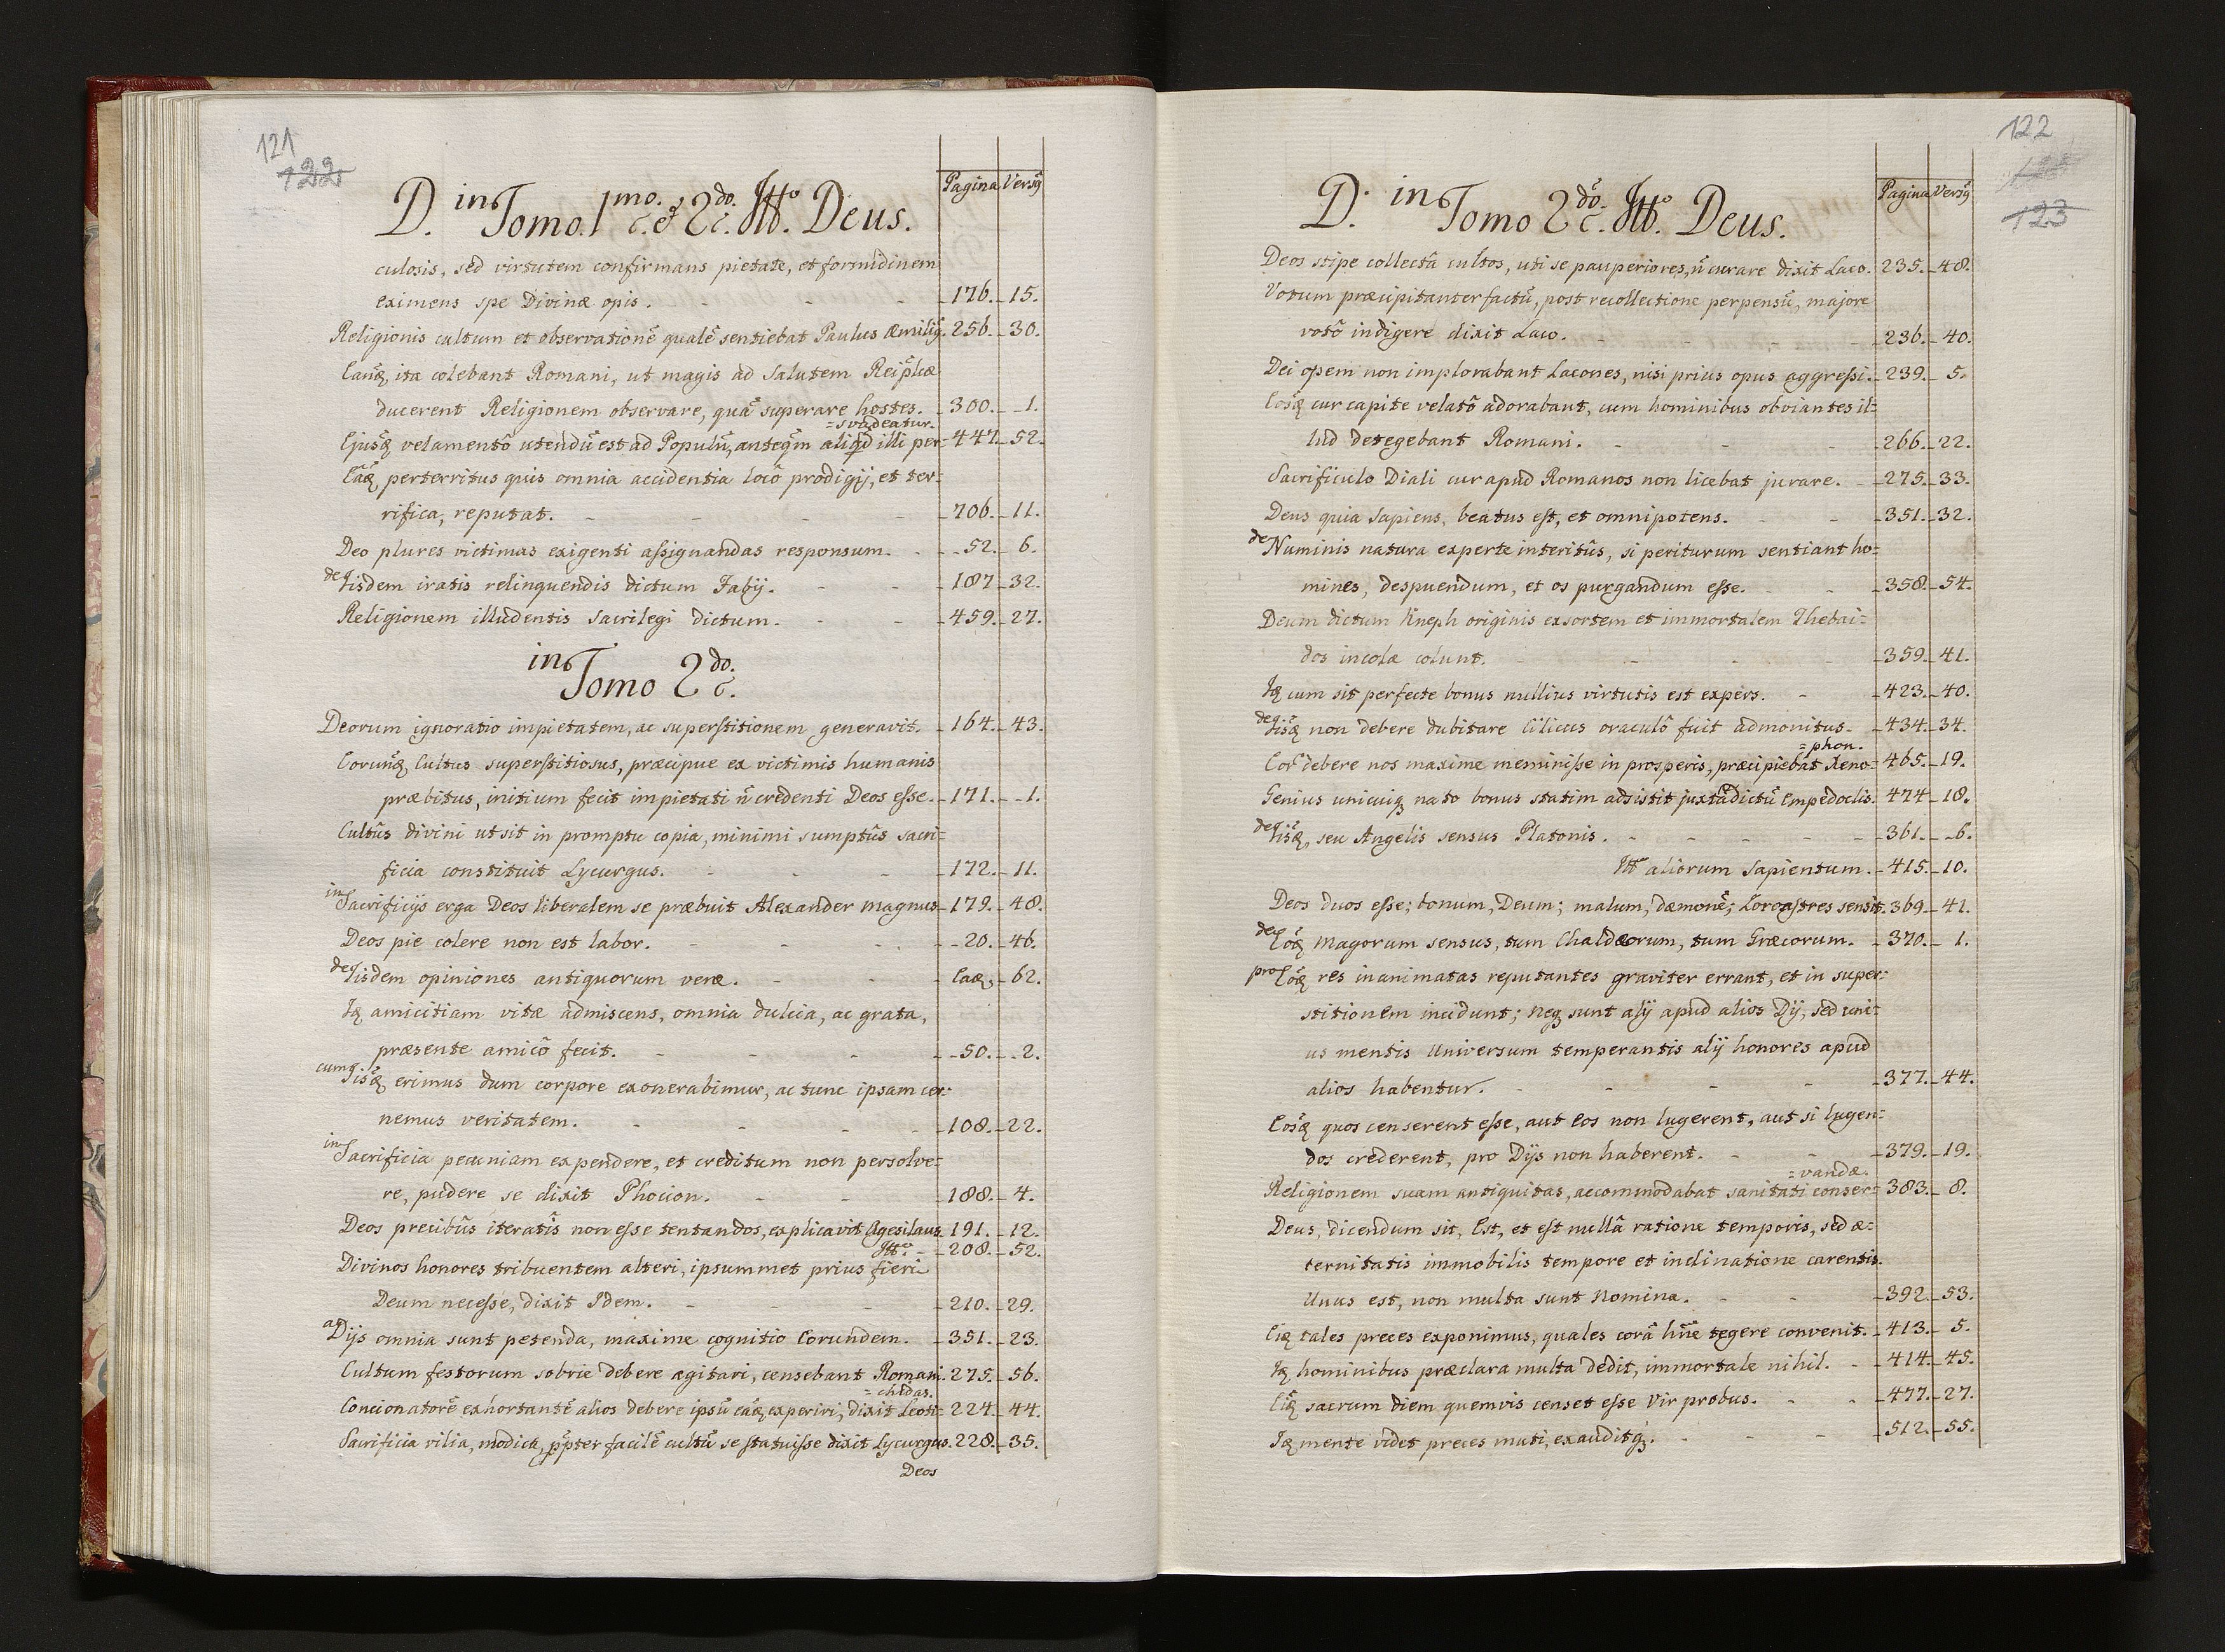 121
122
D. in Tomo. 1mo. & 2do. Itto. Deus.
Pagina Versus
culosis, sed virtutem confirmans pietate, et formidinem
eximens spe Divinæ opis. - 176. - 15.
Religionis cultum et observationē qualē sentiebat Paulus Æmiliq̃. 256. - 30.
Eanq̃, ita colebant Romani, ut magis ad salutem Reip̃licæ
ducerent Religionem observare, quā superare hostes. - 300. - 1.
= svadeatur.
Ejusq̃ velamentô utendū est ad Populū, anteq̃m aliq̃d illi per= 447. - 52.
Eâq̃ perterritus quis omnia accidentia locô prodigij, et ter=
rifica, reputat. - 706. - 11.
Deo plures victimas exigenti assignandas responsum. - 52. - 6.
de Iisdem iratis relinquendis dictum Fabij. - 187 - 32.
Religionem illudentis sacrilegi dictum. - 459. - 27.
in Tomo 2do.
Deorum ignoratio impietatem, ac superstitionem generavit. - 164. - 43.
Eorunq̃ Cultus superstitiosus, præcipue ex victimis humanis
præbitus, initium fecit impietati ñ credenti Deos esse. - 171. - 1.
Cultûs divini ut sit in promptu copia, minimi sumptûs sacri=
ficia constituit Lycurgus. - 172. - 11.
in Sacrificijs erga Deos liberalem se præbuit Alexander magnus - 179. - 48.
Deos pie colere non est labor. - 20. - 46.
de Iisdem opiniones antiquorum veræ. - Eaq̃, - 62.
Iq̃ amicitiam vitæ admiscens, omnia dulcia, ac grata,
præsente amicô fecit. - 50. - 2.
cum Iisq̃ erimus dum corpore exonerabimur, ac tunc ipsam cer=
nemus veritatem. - 108. - 22.
in Sacrificia pecuniam expendere, et creditum non persolve=
re, pudere se dixit Phocion. - 188. - 4.
Deos precibûs iteratîs non esse tentandos, explicavit Agesilaus - 191. - 12.
Itto. = - 208. - 52.
Divinos honores tribuentem alteri, ipsummet prius fieri
Deum necesse, dixit Idem. - 210. - 29.
a Dijs omnia sunt petenda, maxime cognitio Eorundem. - 351. - 23.
Cultum festorum sobrie debere agitari, censebant Romani. 275. - 56.
= chidas.
Concionatorē exhortantē alios debere ipsū eâq̃ experiri, dixit Leoti= 224. - 44.
Sacrificia vilia, modica, p̃pter facilē cultū se statuisse dixit Lycurgus. 228. - 35.
Deos
122
123
D. in Tomo 2do. Itto. Deus.
Pagina Versus
Deos stipe collectâ cultos, uti se pauperiores, ñ curare dixit Laco. 235. - 48.
Votum præcipitanter factū, post recollectione perpensū, majore
votô indigere dixit Laco. - 236. - 40.
Dei opem non implorabant Lacones, nisi prius opus aggressi. - 239. - 5.
Eosq̃ cur capite velatô adorabant, cum hominibus obviantes il=
lud detegebant Romani. - 266. - 22.
Sacrificulo Diali cur apud Romanos non licebat jurare. - 275. - 33.
Deus quia Sapiens, beatus est, et omnipotens. - 351. - 32.
de Numinis natura experte interitûs, si periturum sentiant ho=
mines, despuendum, et os purgandum esse. - 358. - 54.
Deum dictum Kneph originis exsortem et immortalem Thebai=
dos incolæ colunt. - 359. - 41.
Iq̃ cum sit perfecte bonus nullius virtutis est expers. - 423. - 40.
de Iisq̃ non debere dubitare Cilicus oraculô fuit admonitus. - 434. - 34.
= phon.
Eor̃ debere nos maxime meminisse in prosperis, præcipiebat Xeno= 465. - 19.
Genius unicuiq̃ nato bonus statim adsistit juxta dictū Empedoclis. 474 - 18.
de Iisq̃, seu Angelis sensus Platonis. - 361. - 6.
Itto aliorum Sapientum. - 415. - 10.
Deos duos esse; bonum, Deum; malum, dæmonē; Zoroastres sensit. 369 - 41.
de Eôq̃ Magorum sensus, tum Chaldæorum, tum Græcorum. - 370. - 1.
pro Eôq̃ res inanimatas reputantes graviter errant, et in super=
stitionem incidunt; neq̃ sunt alij apud alios Dij, sed uni=
us mentis Universum temperantis alij honores apud
alios habentur. - 377. - 44.
Eosq̃ quos censerent esse, aut Eos non lugerent, aut si lugen=
dos crederent, pro Dijs non haberent. - 379. - 19.
= vandæ.
Religionem suam antiquitas, accommodabat sanitati conser= 383. - 8.
Deus, dicendum sit, Est, et est nullâ ratione temporis, sed æ=
ternitatis immobilis tempore et inclinatione carentis.
Unus est, non multa sunt Nomina. - 392. - 53.
Eiq̃ tales preces exponimus, quales corā hñe tegere convenit. - 413. - 5.
Iq̃ hominibus præclara multa dedit, immortale nihil. - 414. - 45.
Eiq̃ sacrum diem quemvis censet esse Vir probus. - 477. - 27.
Iq̃ mente videt preces muti, exauditq̃. - 512. - 55.